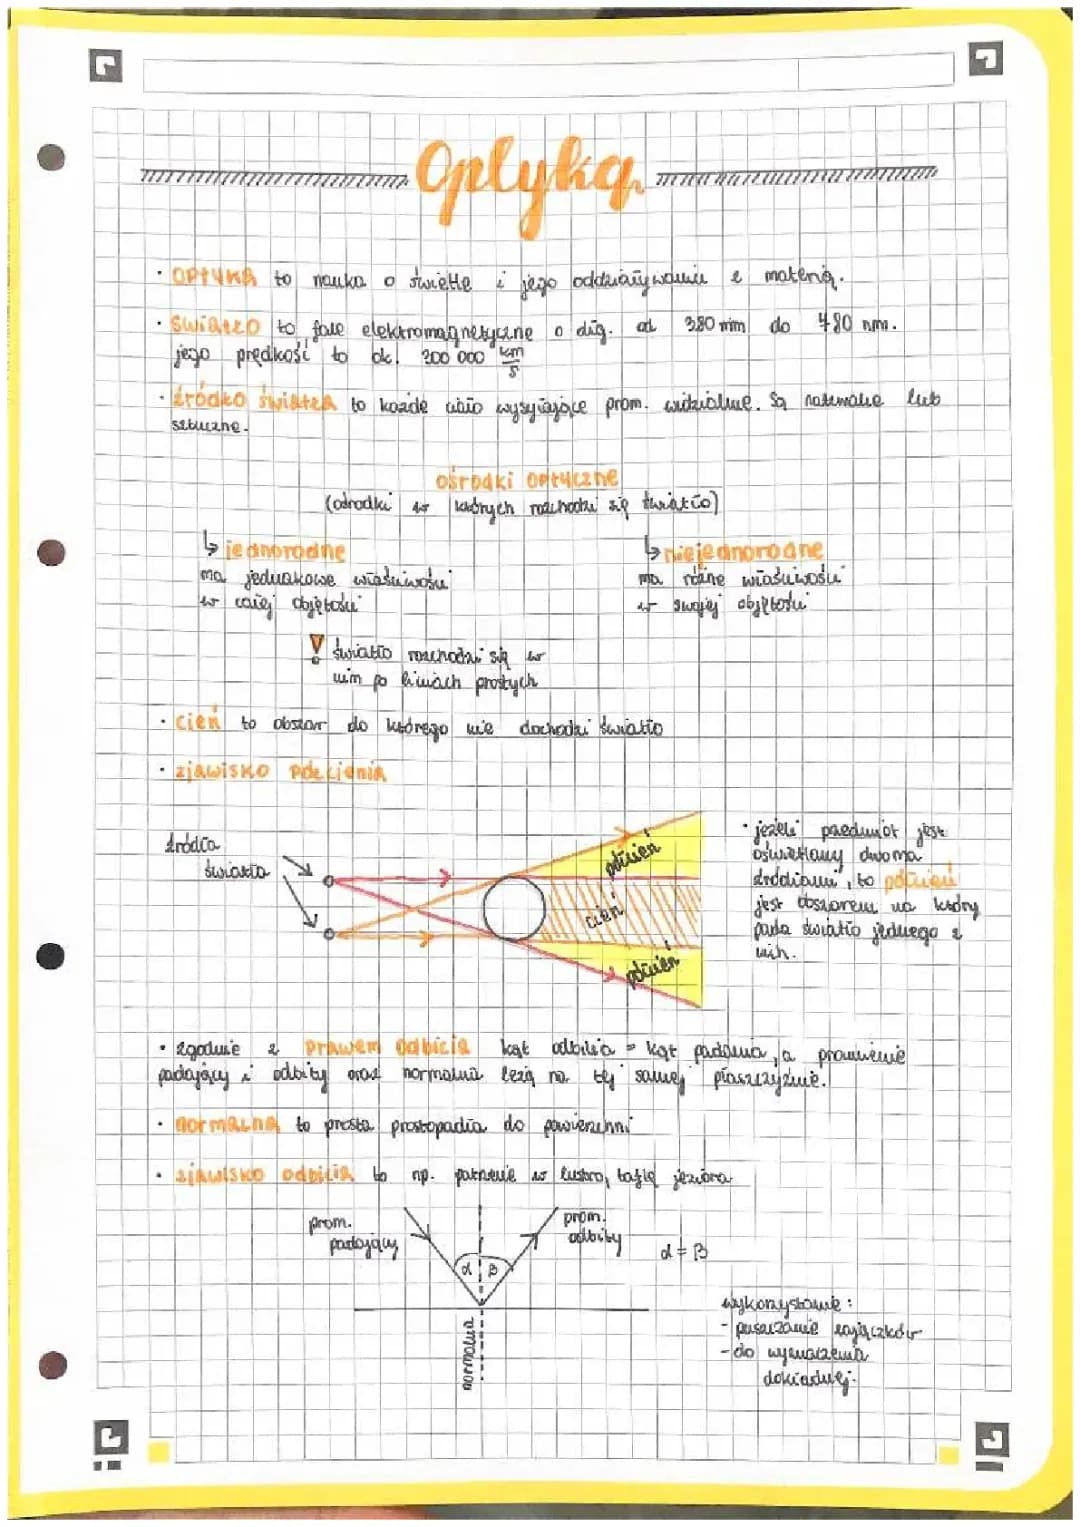 Optyka
· OPTYKA to nauka o świetle i jego oddziaływaniu z materią.
· ŚWIATŁO to fale elektromagnetyczne o dłg. od 380 mm do 780 nm.
jego prędkość to ok. 300 000 km/s
· źródło światła to każde ciało wysyłające prom. widzialne. Są naturalne lub
sztuczne.
ośrodki optyczne
(ośrodki w których rozchodzi się światło)
↳ jednorodne
ma jednakowe właściwości
w całej objętości
↳ niejednorodne
ma różne właściwości
w swojej objętości
! światło rozchodzi się w
nim po liniach prostych
· cień to obszar do którego nie dochodzi światło
· zjawisko półcienia
źródła
światła
półcień
cień
półcień
· jeżeli przedmiot jest
oświetlany dwoma
źródłami, to półcień
jest obszarem na który
pada światło jednego z
nich.
· zgodnie z prawem odbicia kąt odbicia = kąt padania, a promienie
padający i odbity oraz normalna leżą na tej samej płaszczyźnie.
· normalna to prosta prostopadła do powierzchni
· zjawisko odbicia to np. patrzenie w lustro, taflę jeziora
prom.
padający
prom.
odbity
α β
α = β
normalna
wykorzystanie:
- puszczanie zajączków
- do wyznaczenia